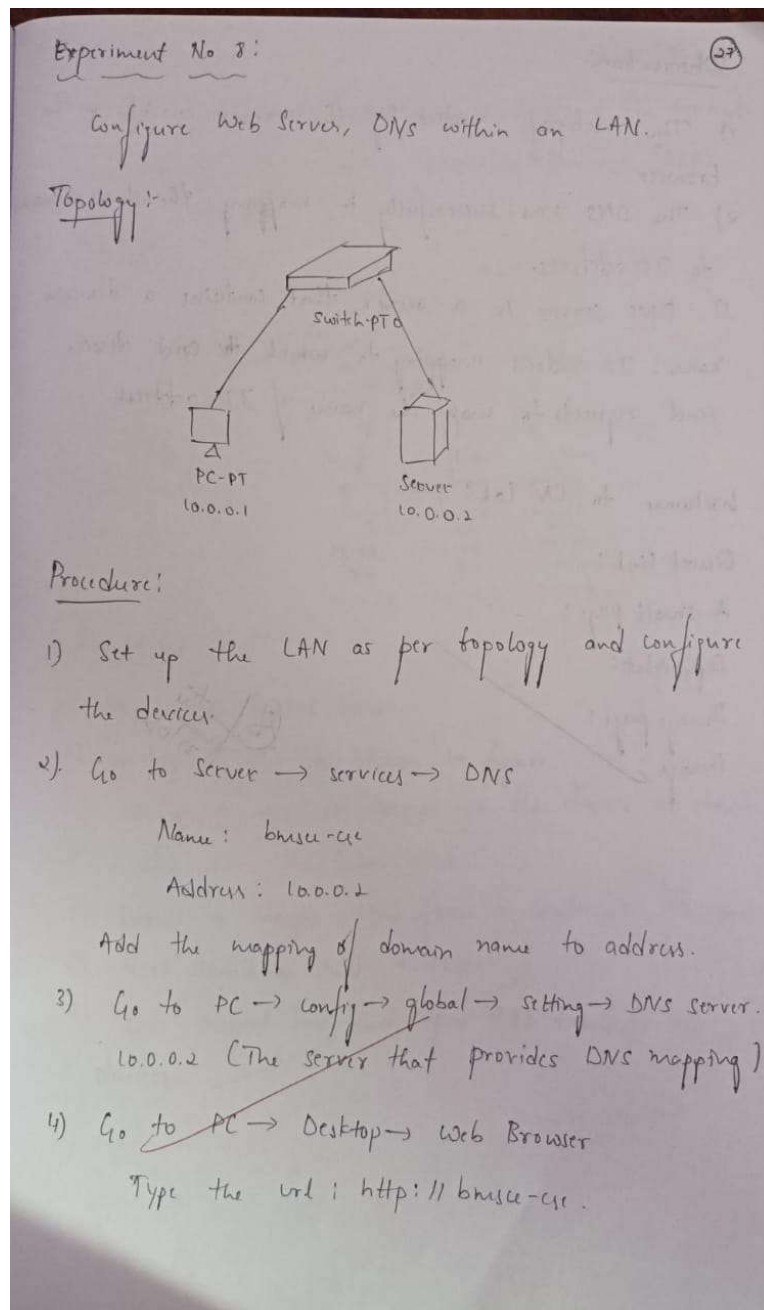 27
Experiment No 8:
Configure Web Server, DNS within an LAN.
Topology:-
Switch-PT0
PC-PT
10.0.0.1
Server
10.0.0.2
Procedure:
1) Set up the LAN as per topology and configure
the devices.
2). Go to Server → services → DNS
Name: bmsce-cse
Address: 10.0.0.2
Add the mapping of domain name to address.
3) Go to PC → config → global → setting → DNS server.
10.0.0.2 (The server that provides DNS mapping)
4) Go to PC → Desktop → Web Browser
Type the url: http://bmsce-cse.